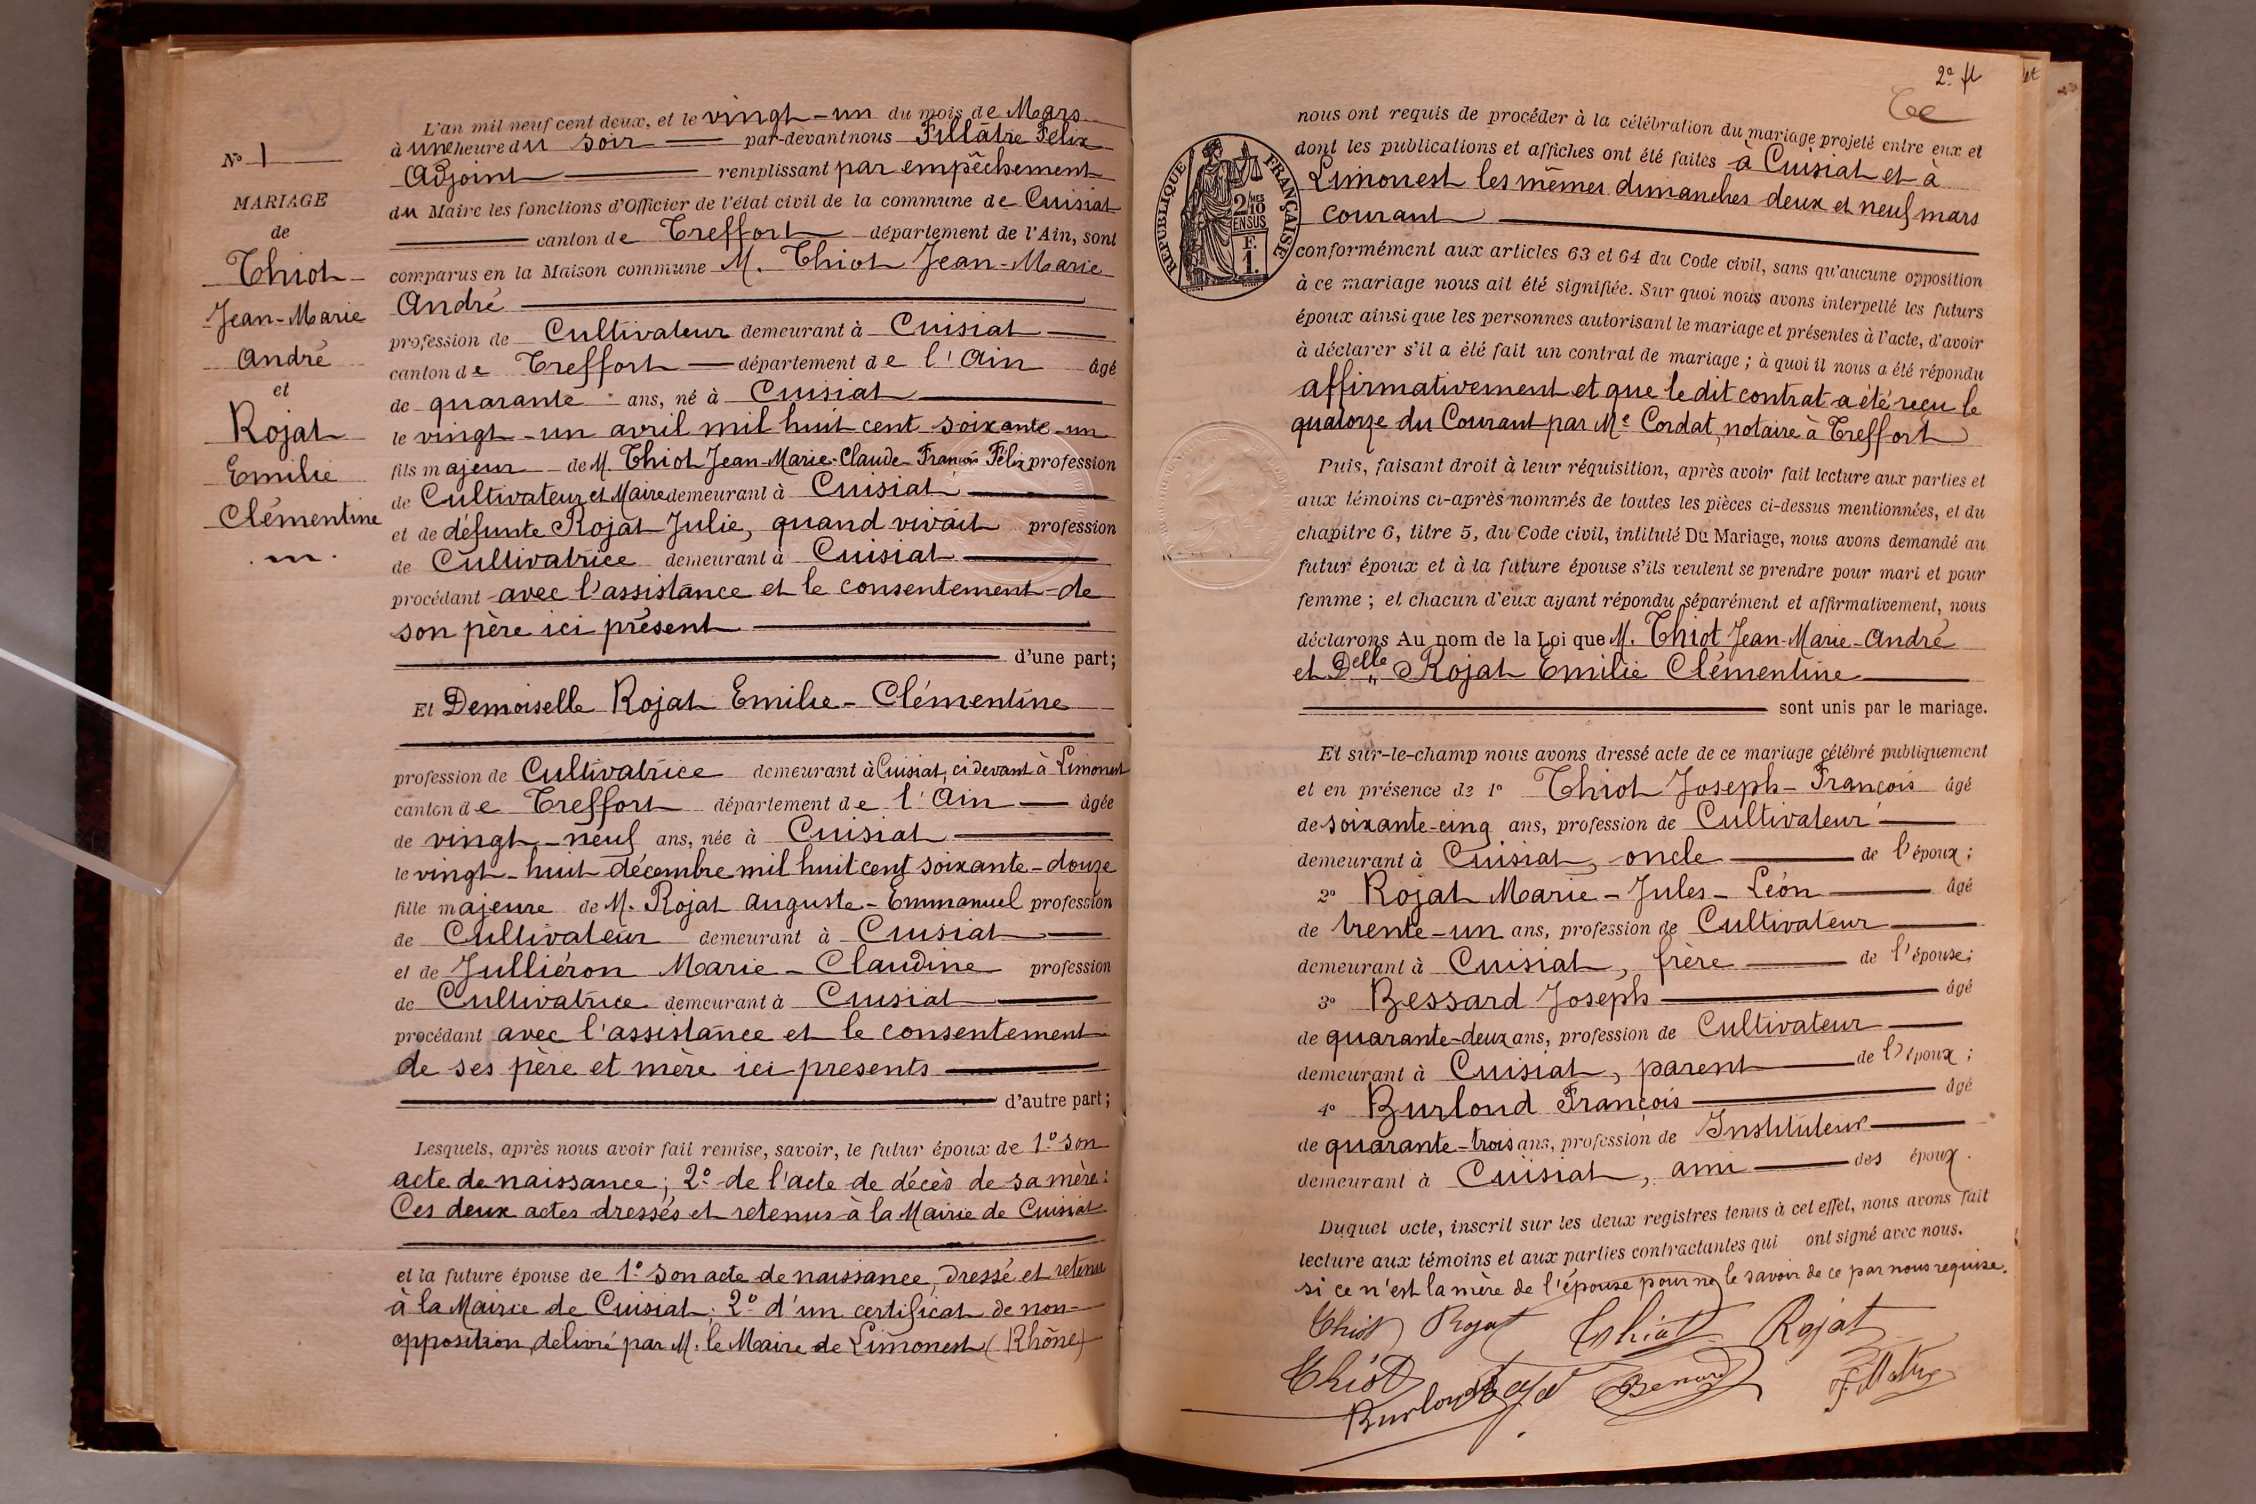 N° 1
MARIAGE
de
Thiot
Jean-Marie
André
et
Rojat
Emilie
Clémentine
L'an mil neuf cent deux, et le vingt-un du mois de Mars
à une heure du soir par-devant nous Fillâtre Félix
Adjoint remplissant par empêchement
du Maire les fonctions d'Officier de l'état civil de la commune de Cuisiat
canton de Treffort département de l'Ain, sont
comparus en la Maison commune M. Thiot Jean-Marie
André
profession de Cultivateur demeurant à Cuisiat
canton de Treffort département de l'Ain âgé
de quarante ans, né à Cuisiat
le vingt-un avril mil huit cent soixante-un
fils majeur de M. Thiot Jean-Marie-Claude-François Félix profession
de Cultivateur et Maire demeurant à Cuisiat
et de défunte Rojat Julie, quand vivait profession
de Cultivatrice demeurant à Cuisiat
procédant avec l'assistance et le consentement de
son père ici présent
d'une part;
Et Demoiselle Rojat Emilie-Clémentine
profession de Cultivatrice demeurant à Cuisiat, ci devant à Limonest
canton de Treffort département de l'Ain âgée
de vingt-neuf ans, née à Cuisiat
le vingt-huit décembre mil huit cent soixante-douze
fille majeure de M. Rojat Auguste-Emmanuel profession
de Cultivateur demeurant à Cuisiat
et de Julliéron Marie-Claudine profession
de Cultivatrice demeurant à Cuisiat
procédant avec l'assistance et le consentement
de ses père et mère ici présents
d'autre part;
Lesquels, après nous avoir fait remise, savoir, le futur époux de 1° son
acte de naissance; 2° de l'acte de décès de sa mère:
Ces deux actes dressés et retenus à la Mairie de Cuisiat
et la future épouse de 1° son acte de naissance, dressé et retenu
à la Mairie de Cuisiat; 2° d'un certificat de non-
opposition délivré par M. le Maire de Limonest (Rhône)
2e ft
et
RÉPUBLIQUE FRANÇAISE
2/10
MES
EN SUS
F.
1.
nous ont requis de procéder à la célébration du mariage projeté entre eux et
dont les publications et affiches ont été faites à Cuisiat et à
Limonest les mêmes dimanches deux et neuf mars
courant
conformément aux articles 63 et 64 du Code civil, sans qu'aucune opposition
à ce mariage nous ait été signifiée. Sur quoi nous avons interpellé les futurs
époux ainsi que les personnes autorisant le mariage et présentes à l'acte, d'avoir
à déclarer s'il a été fait un contrat de mariage; à quoi il nous a été répondu
affirmativement et que le dit contrat a été reçu le
quatorze du Courant par Me Cordat, notaire à Treffort
Puis, faisant droit à leur réquisition, après avoir fait lecture aux parties et
aux témoins ci-après nommés de toutes les pièces ci-dessus mentionnées, et du
chapitre 6, titre 5, du Code civil, intitulé Du Mariage, nous avons demandé au
futur époux et à la future épouse s'ils veulent se prendre pour mari et pour
femme; et chacun d'eux ayant répondu séparément et affirmativement, nous
déclarons Au nom de la Loi que M. Thiot Jean-Marie-André
et Delle Rojat Emilie Clémentine
sont unis par le mariage.
Et sur-le-champ nous avons dressé acte de ce mariage célébré publiquement
et en présence de 1° Thiot Joseph-François âgé
de soixante-cinq ans, profession de Cultivateur
demeurant à Cuisiat, oncle de l'époux;
2° Rojat Marie-Jules-Léon âgé
de trente-un ans, profession de Cultivateur
demeurant à Cuisiat, frère de l'épouse;
3° Bessard Joseph âgé
de quarante-deux ans, profession de Cultivateur
demeurant à Cuisiat, parent de l'époux;
4° Burloud François âgé
de quarante-trois ans, profession de Instituteur
demeurant à Cuisiat, ami des époux.
Duquel acte, inscrit sur les deux registres tenus à cet effet, nous avons fait
lecture aux témoins et aux parties contractantes qui ont signé avec nous.
si ce n'est la mère de l'épouse pour ne le savoir de ce par nous requise.
Thiot Rojat Thiot Rojat
Thiot
Burloud